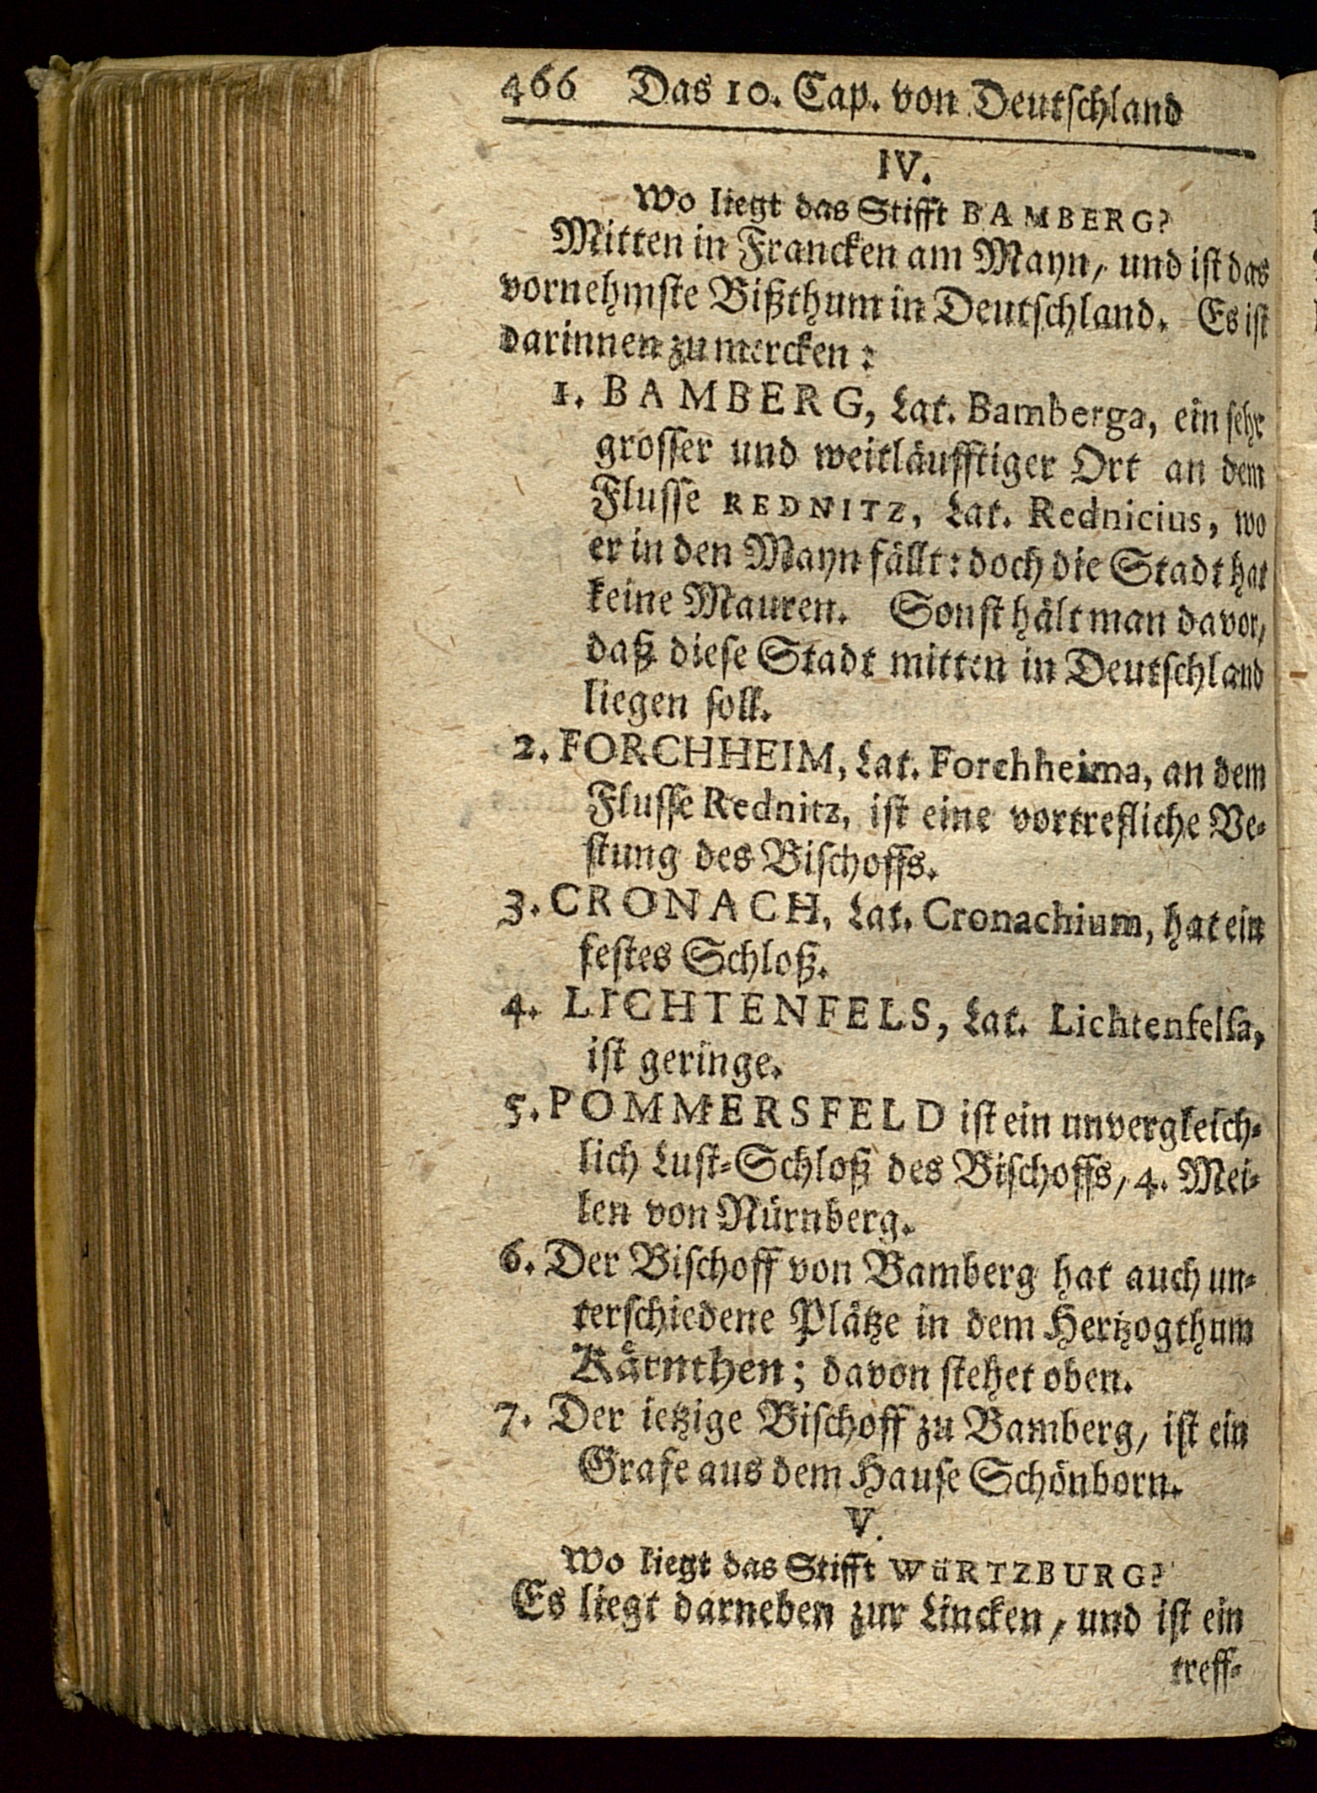 466 Das 10. Cap. von Deutſchland
IV.
Wo liegt das Stifft BAMBERG?
Mitten in Francken am Mayn, und iſt das
vornehmſte Bißthum in Deutſchland. Es iſt
darinnen zu mercken:
1. BAMBERG, Lat. Bamberga, ein ſehr
groſſer und weitläufftiger Ort an dem
Fluſſe REDNITZ, Lat. Rednicius, wo
er in den Mayn fällt: doch die Stadt hat
keine Mauren. Sonſt hält man davor,
daß dieſe Stadt mitten in Deutſchland
liegen ſoll.
2. FORCHHEIM, Lat. Forchheima, an dem
Fluſſe Rednitz, iſt eine vortrefliche Ve-
ſtung des Biſchoffs.
3. CRONACH, Lat. Cronachium, hat ein
feſtes Schloß.
4. LICHTENFELS, Lat. Lichtenfelſa,
iſt geringe.
5. POMMERSFELD iſt ein unvergleich-
lich Luſt-Schloß des Biſchoffs, 4. Mei-
len von Nürnberg.
6. Der Biſchoff von Bamberg hat auch un-
terſchiedene Plätze in dem Hertzogthum
Kärnthen; davon ſtehet oben.
7. Der ietzige Biſchoff zu Bamberg, iſt ein
Grafe aus dem Hauſe Schönborn.
V.
Wo liegt das Stifft WüRTZBURG?
Es liegt darneben zur Lincken, und iſt ein
treff-